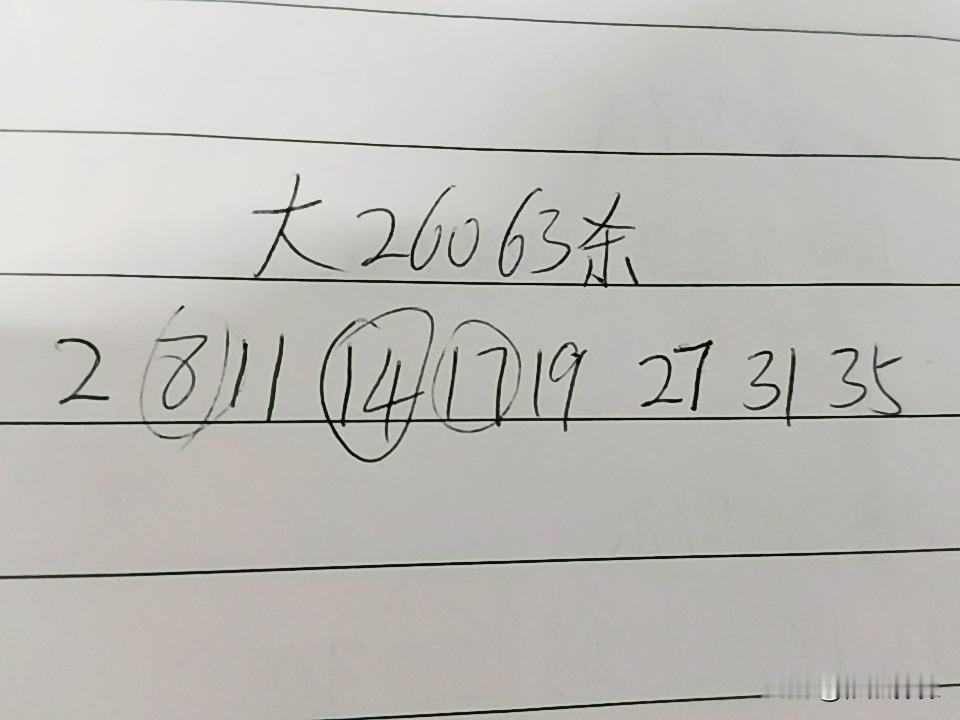 大26063杀
2 8 11 14 17 19 27 31 35